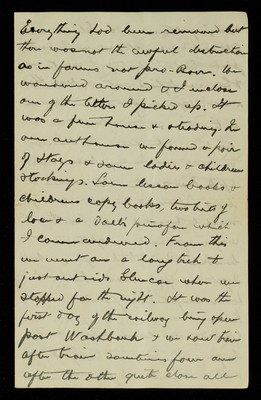 Everything had been removed but
there was not the awful destruction
as in farms not pro-Boer. We
wandered around & I inclose
one of the letters I picked up. It
was a fine house & standing. In
one outhouse we found a pair
of stays & some ladies & childrens
stockings. Some lesson books &
childrens copy books, two bits of
lace & a dolls pinafore which
I commandeered. From this
we went on a long trek to
just outside Glencoe where we
stopped for the night. It was the
first day of the railway being open
past Washbank & we saw train
after train sometimes four one
after the other quite close all